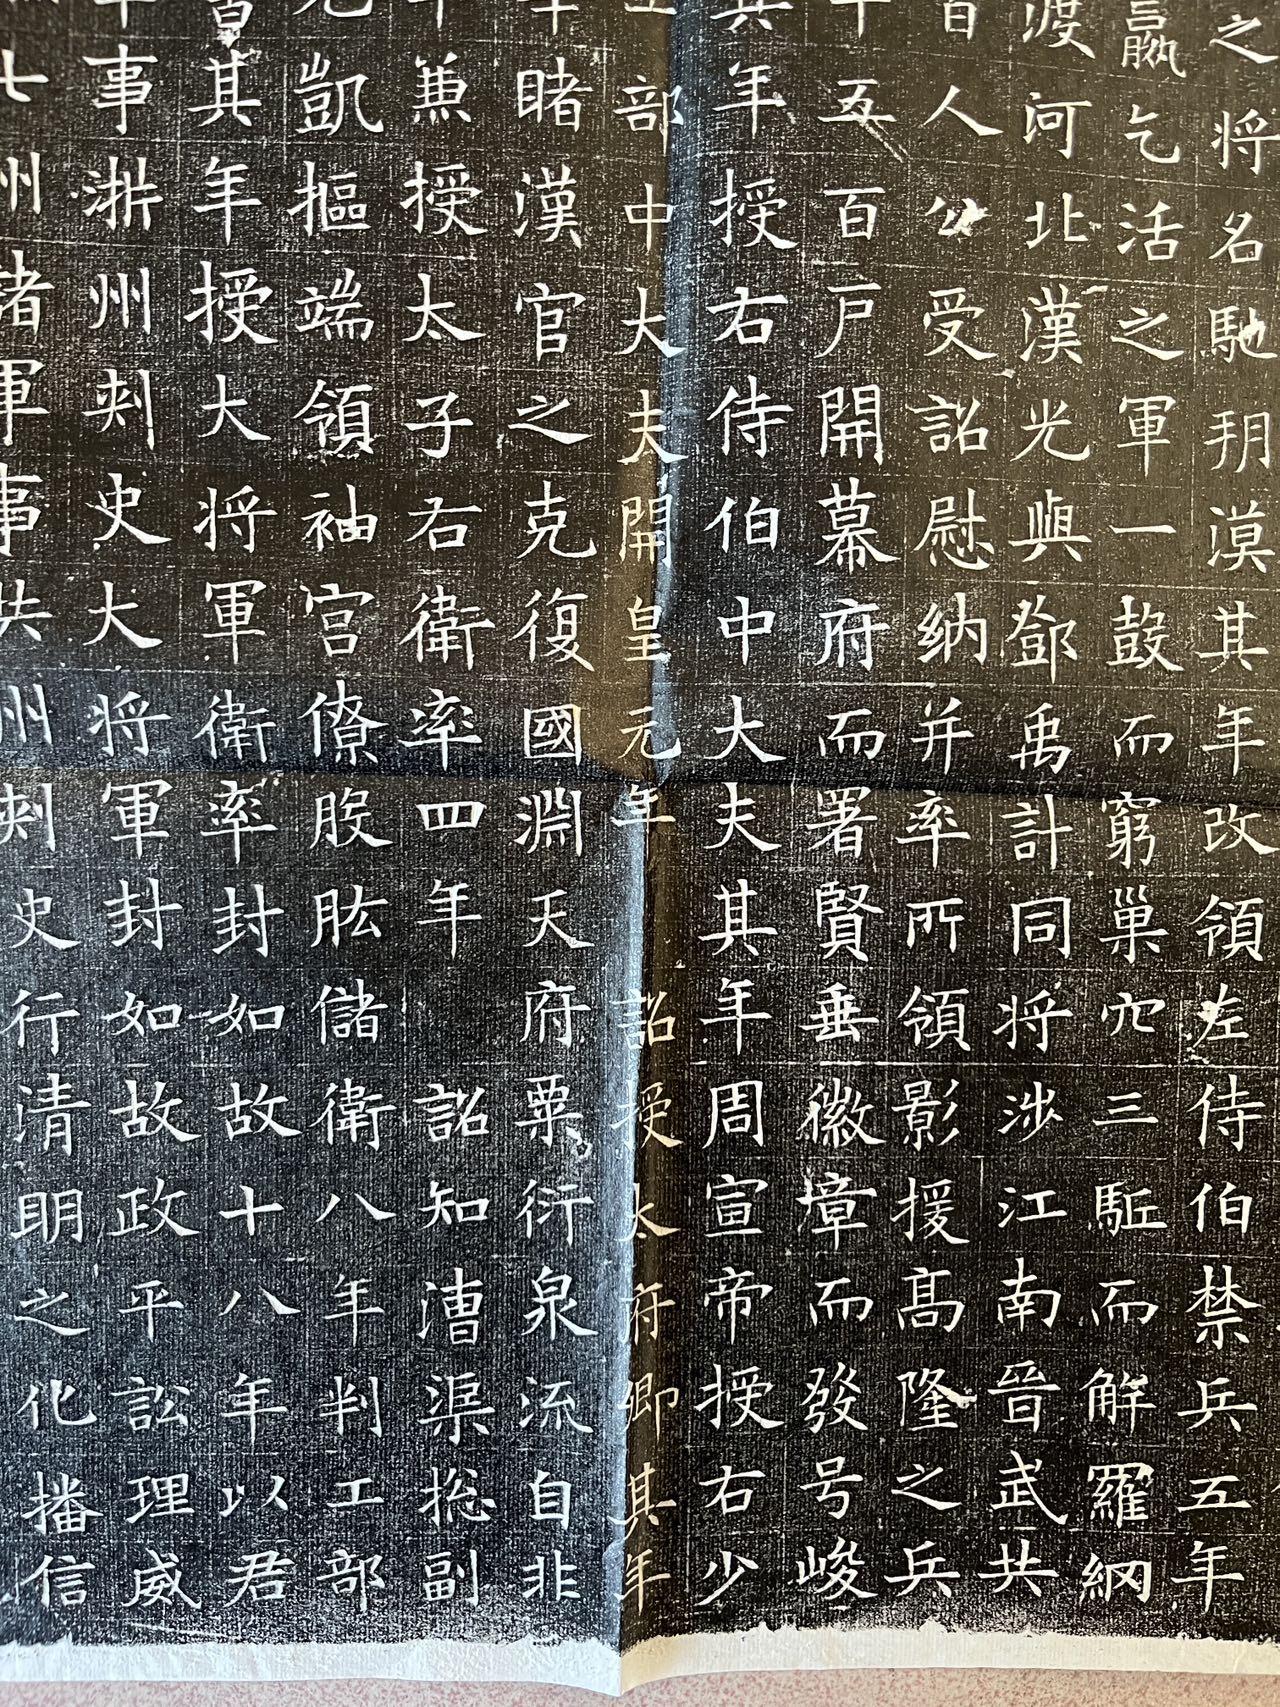 之将名馳朔漠其年改領左侍伯禁兵五年
嬴乞活之軍一鼓而窮巢穴三駈而解羅網
渡河北漢光與鄧禹計同将涉江南晉武共
百人公受詔慰納并率所領影援髙隆之兵
千五百户開幕府而署賢垂徽章而發号峻
其年授右侍伯中大夫其年周宣帝授右少
工部中大夫開皇元年 詔授太府卿其年
睹漢官之克復國淵天府粟衍泉流自非
年兼授太子右衛率四年 詔知漕渠捴副
元凱摳端領袖宫僚股肱儲衛八年判工部
其年授大将軍衛率封如故十八年以君
事浙州刺史大将軍封如故政平訟理威
七州諸軍事洪州刺史行清明之化播信